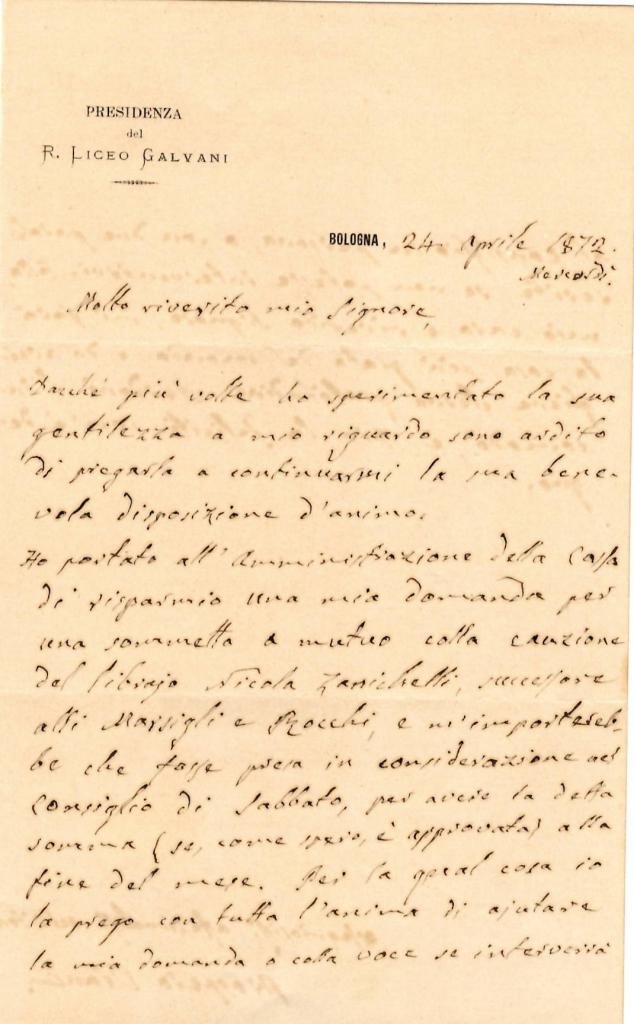 PRESIDENZA
del
R. LICEO GALVANI
BOLOGNA, 24 Aprile 1872.
Mercoldì.
Molto riverito mio Signore,
Dacché più volte ho sperimentato la sua
gentilezza a mio riguardo sono ardito
di pregarla a continuarmi la sua bene-
vola disposizione d'animo.
Ho portato all'Amministrazione della Cassa
di risparmio una mia domanda per
una sommetta a mutuo colla cauzione
del librajo Nicola Zanichelli, successore
alli Marsigli e Rocchi, e m'importereb-
be che fosse presa in considerazione nel
Consiglio di Sabbato, per avere la detta
somma (se, come spero, è approvata) alla
fine del mese. Per la qual cosa io
la prego con tutta l'anima di ajutare
la mia domanda o colla voce se interverrà